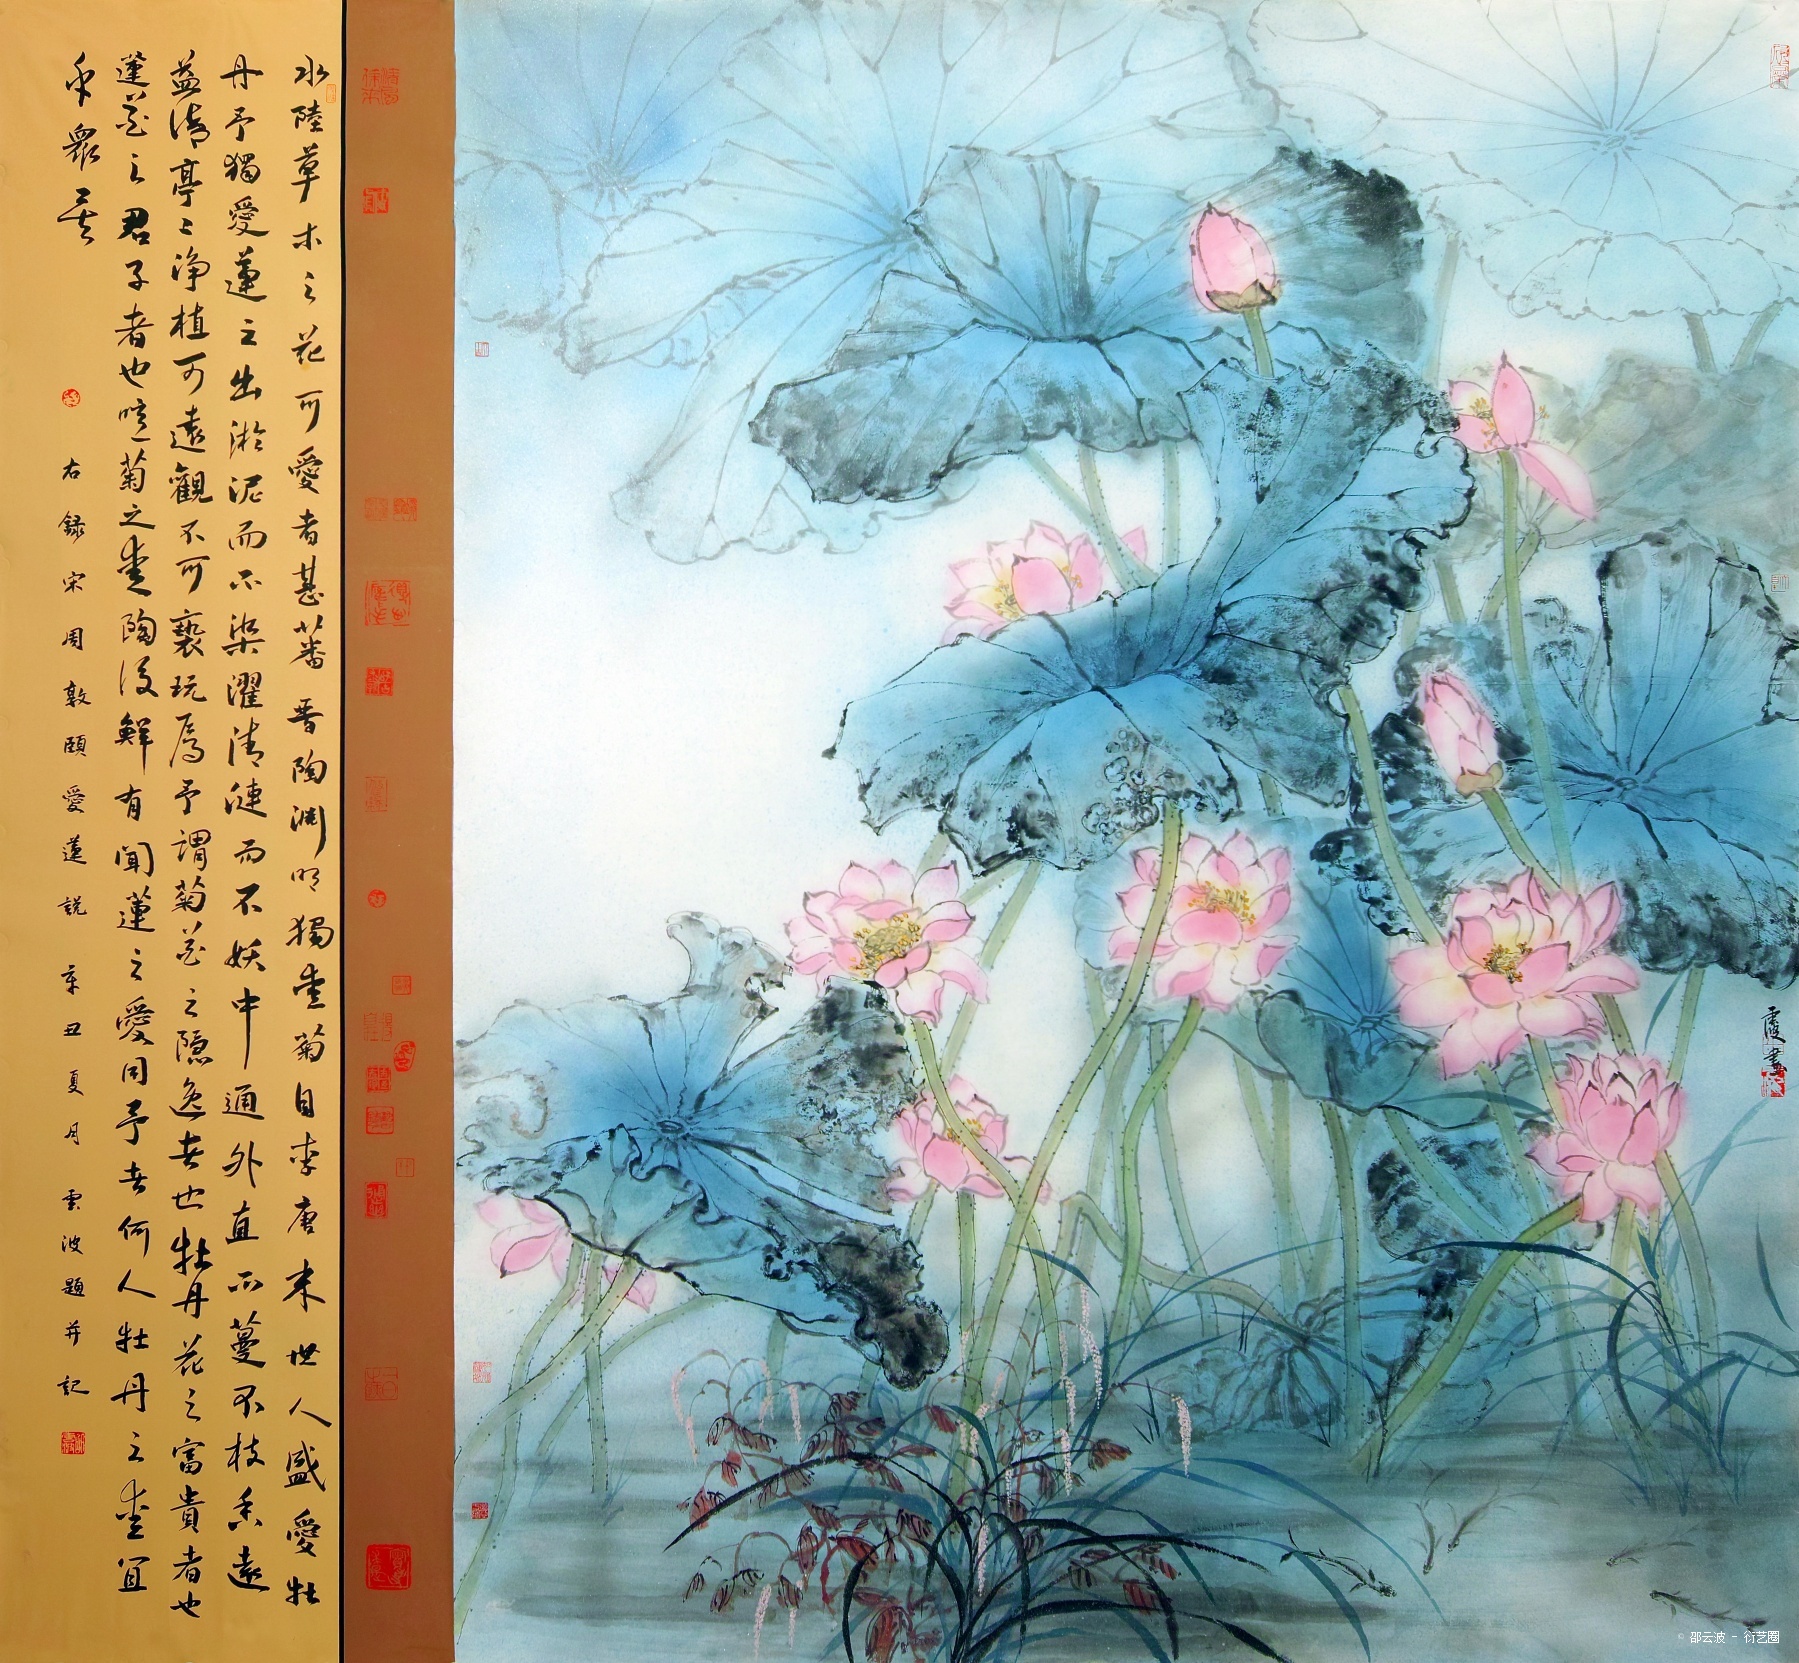 水陸草木之花可愛者甚蕃晉陶淵明獨愛菊自李唐来世人盛愛牡
丹予獨愛蓮之出淤泥而不染濯清漣而不妖中通外直不蔓不枝香遠
益清亭〻淨植可遠觀不可褻玩焉予謂菊花之隐逸者也牡丹花之富貴者也
蓮花之君子者也噫菊之愛陶後鮮有聞蓮之愛同予者何人牡丹之愛宜
乎衆矣
右録宋周敦頤愛蓮説 辛丑夏月 雲波題并記
霞畫
© 邵云波 - 衍艺圈